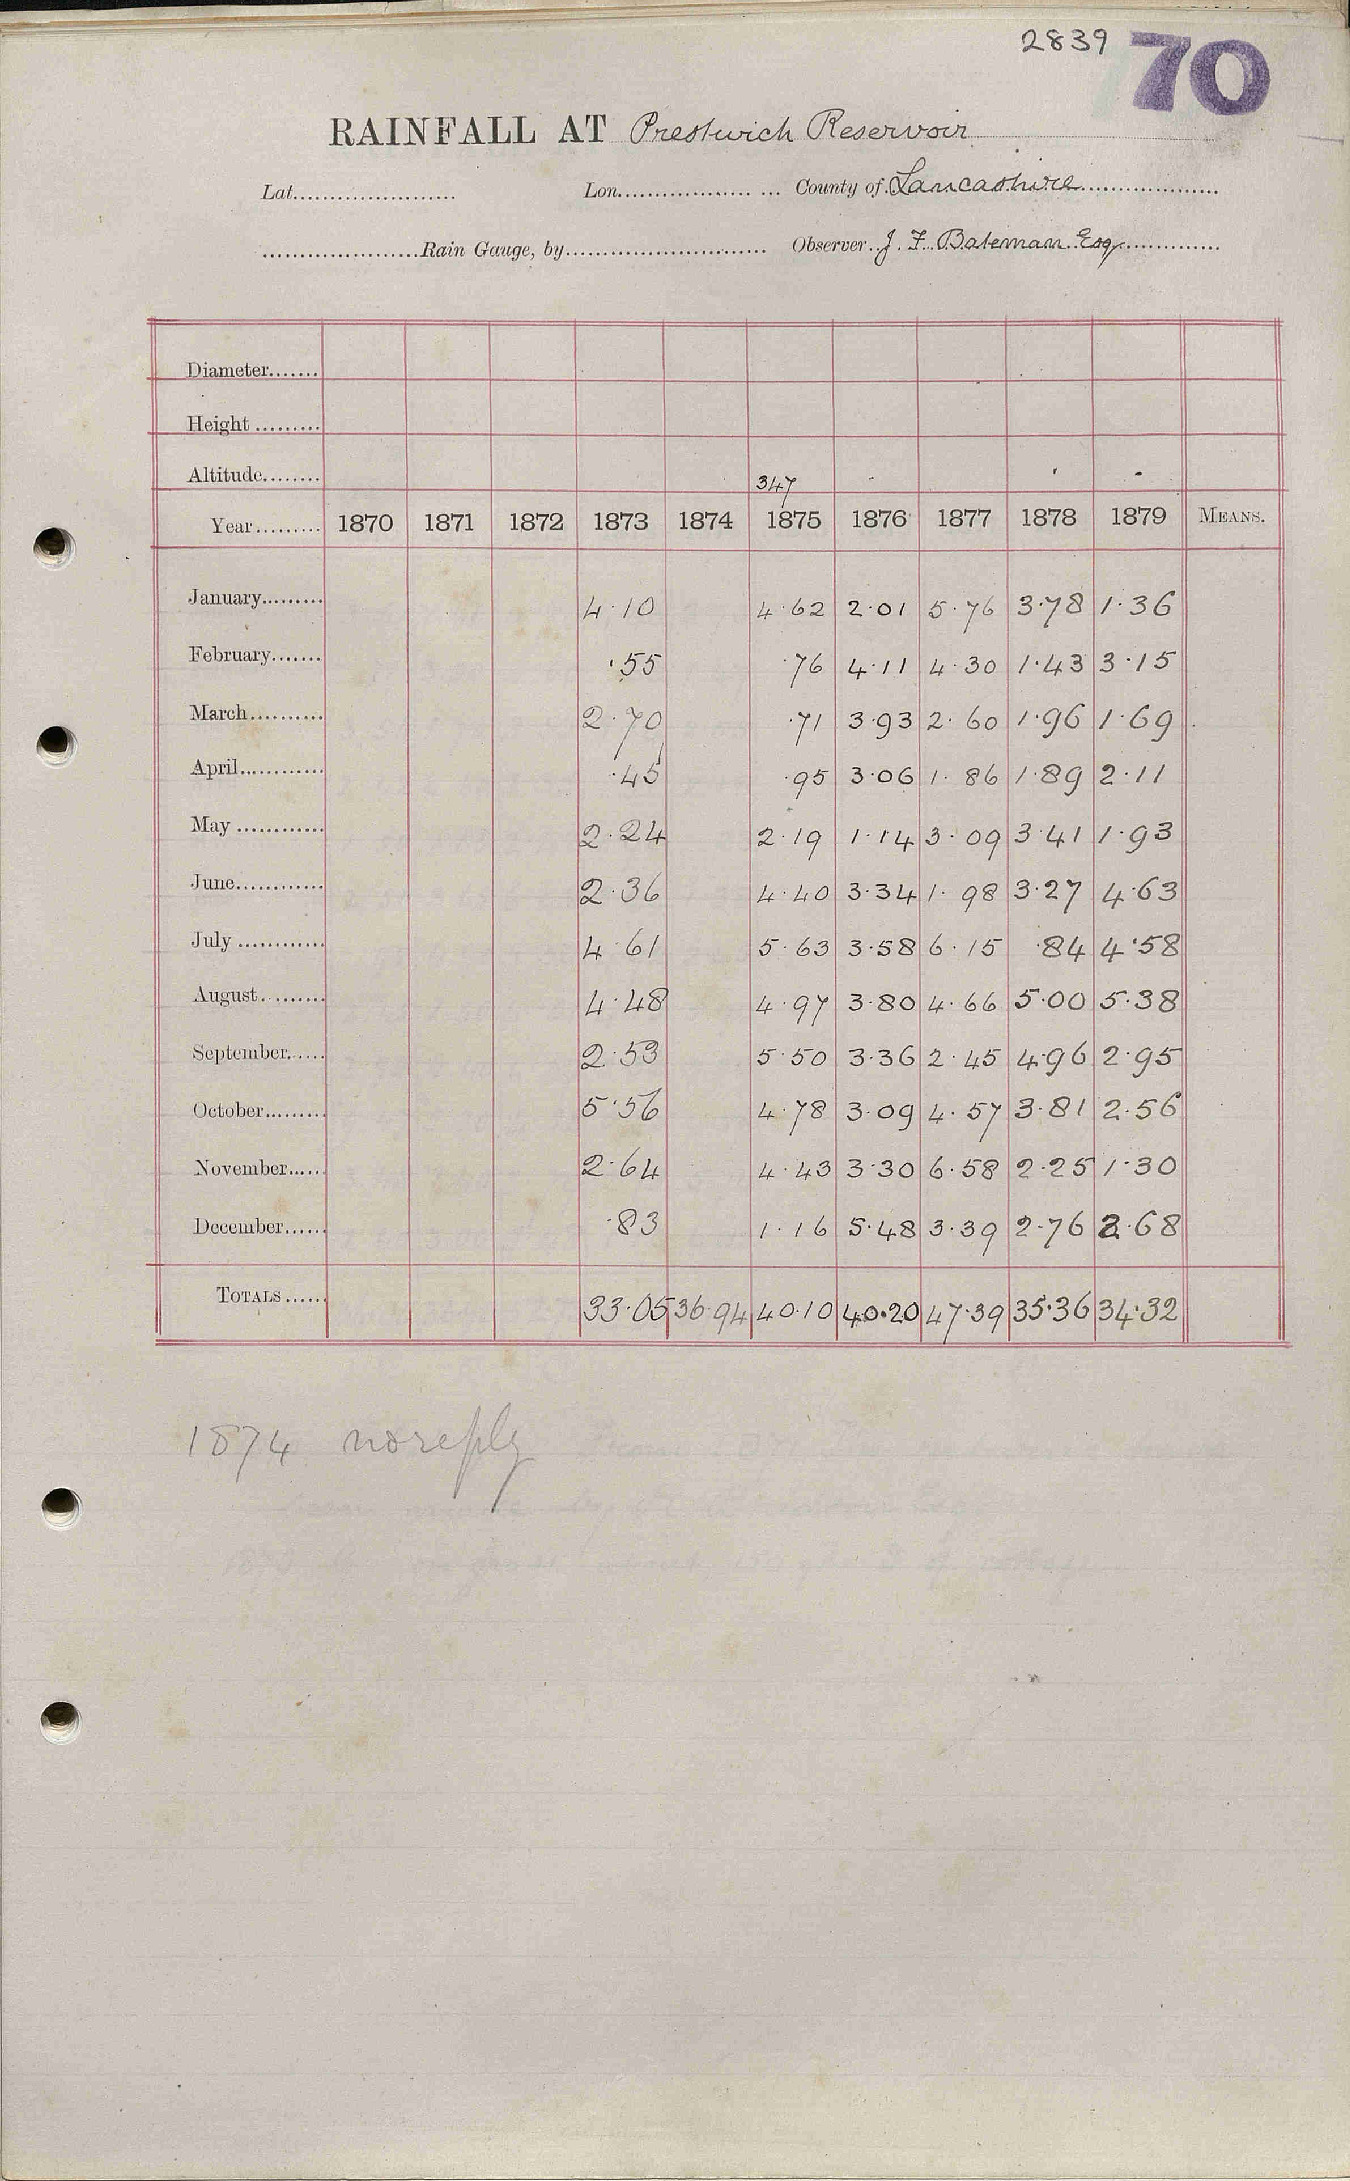 2839 70
RAINFALL AT Prestwich Reservoir
Lat. Lon. County of Lancashire
Rain Gauge, by Observer J. F. Bateman Esq
Diameter
Height
Altitude 347
Year 1870 1871 1872 1873 1874 1875 1876 1877 1878 1879 MEANS.
January 4.10 4.62 2.01 5.76 3.78 1.36
February .55 .76 4.11 4.30 1.43 3.15
March 2.70 .71 3.93 2.60 1.96 1.69
April .45 .95 3.06 1.86 1.89 2.11
May 2.24 2.19 1.14 3.09 3.41 1.93
June 2.36 4.40 3.34 1.98 3.27 4.63
July 4.61 5.63 3.58 6.15 .84 4.58
August 4.48 4.97 3.80 4.66 5.00 5.38
September 2.53 5.50 3.36 2.45 4.96 2.95
October 5.56 4.78 3.09 4.57 3.81 2.56
November 2.64 4.43 3.30 6.58 2.25 1.30
December .83 1.16 5.48 3.39 2.76 2.68
TOTALS 33.05 36.94 40.10 40.20 47.39 35.36 34.32
1874 no reply